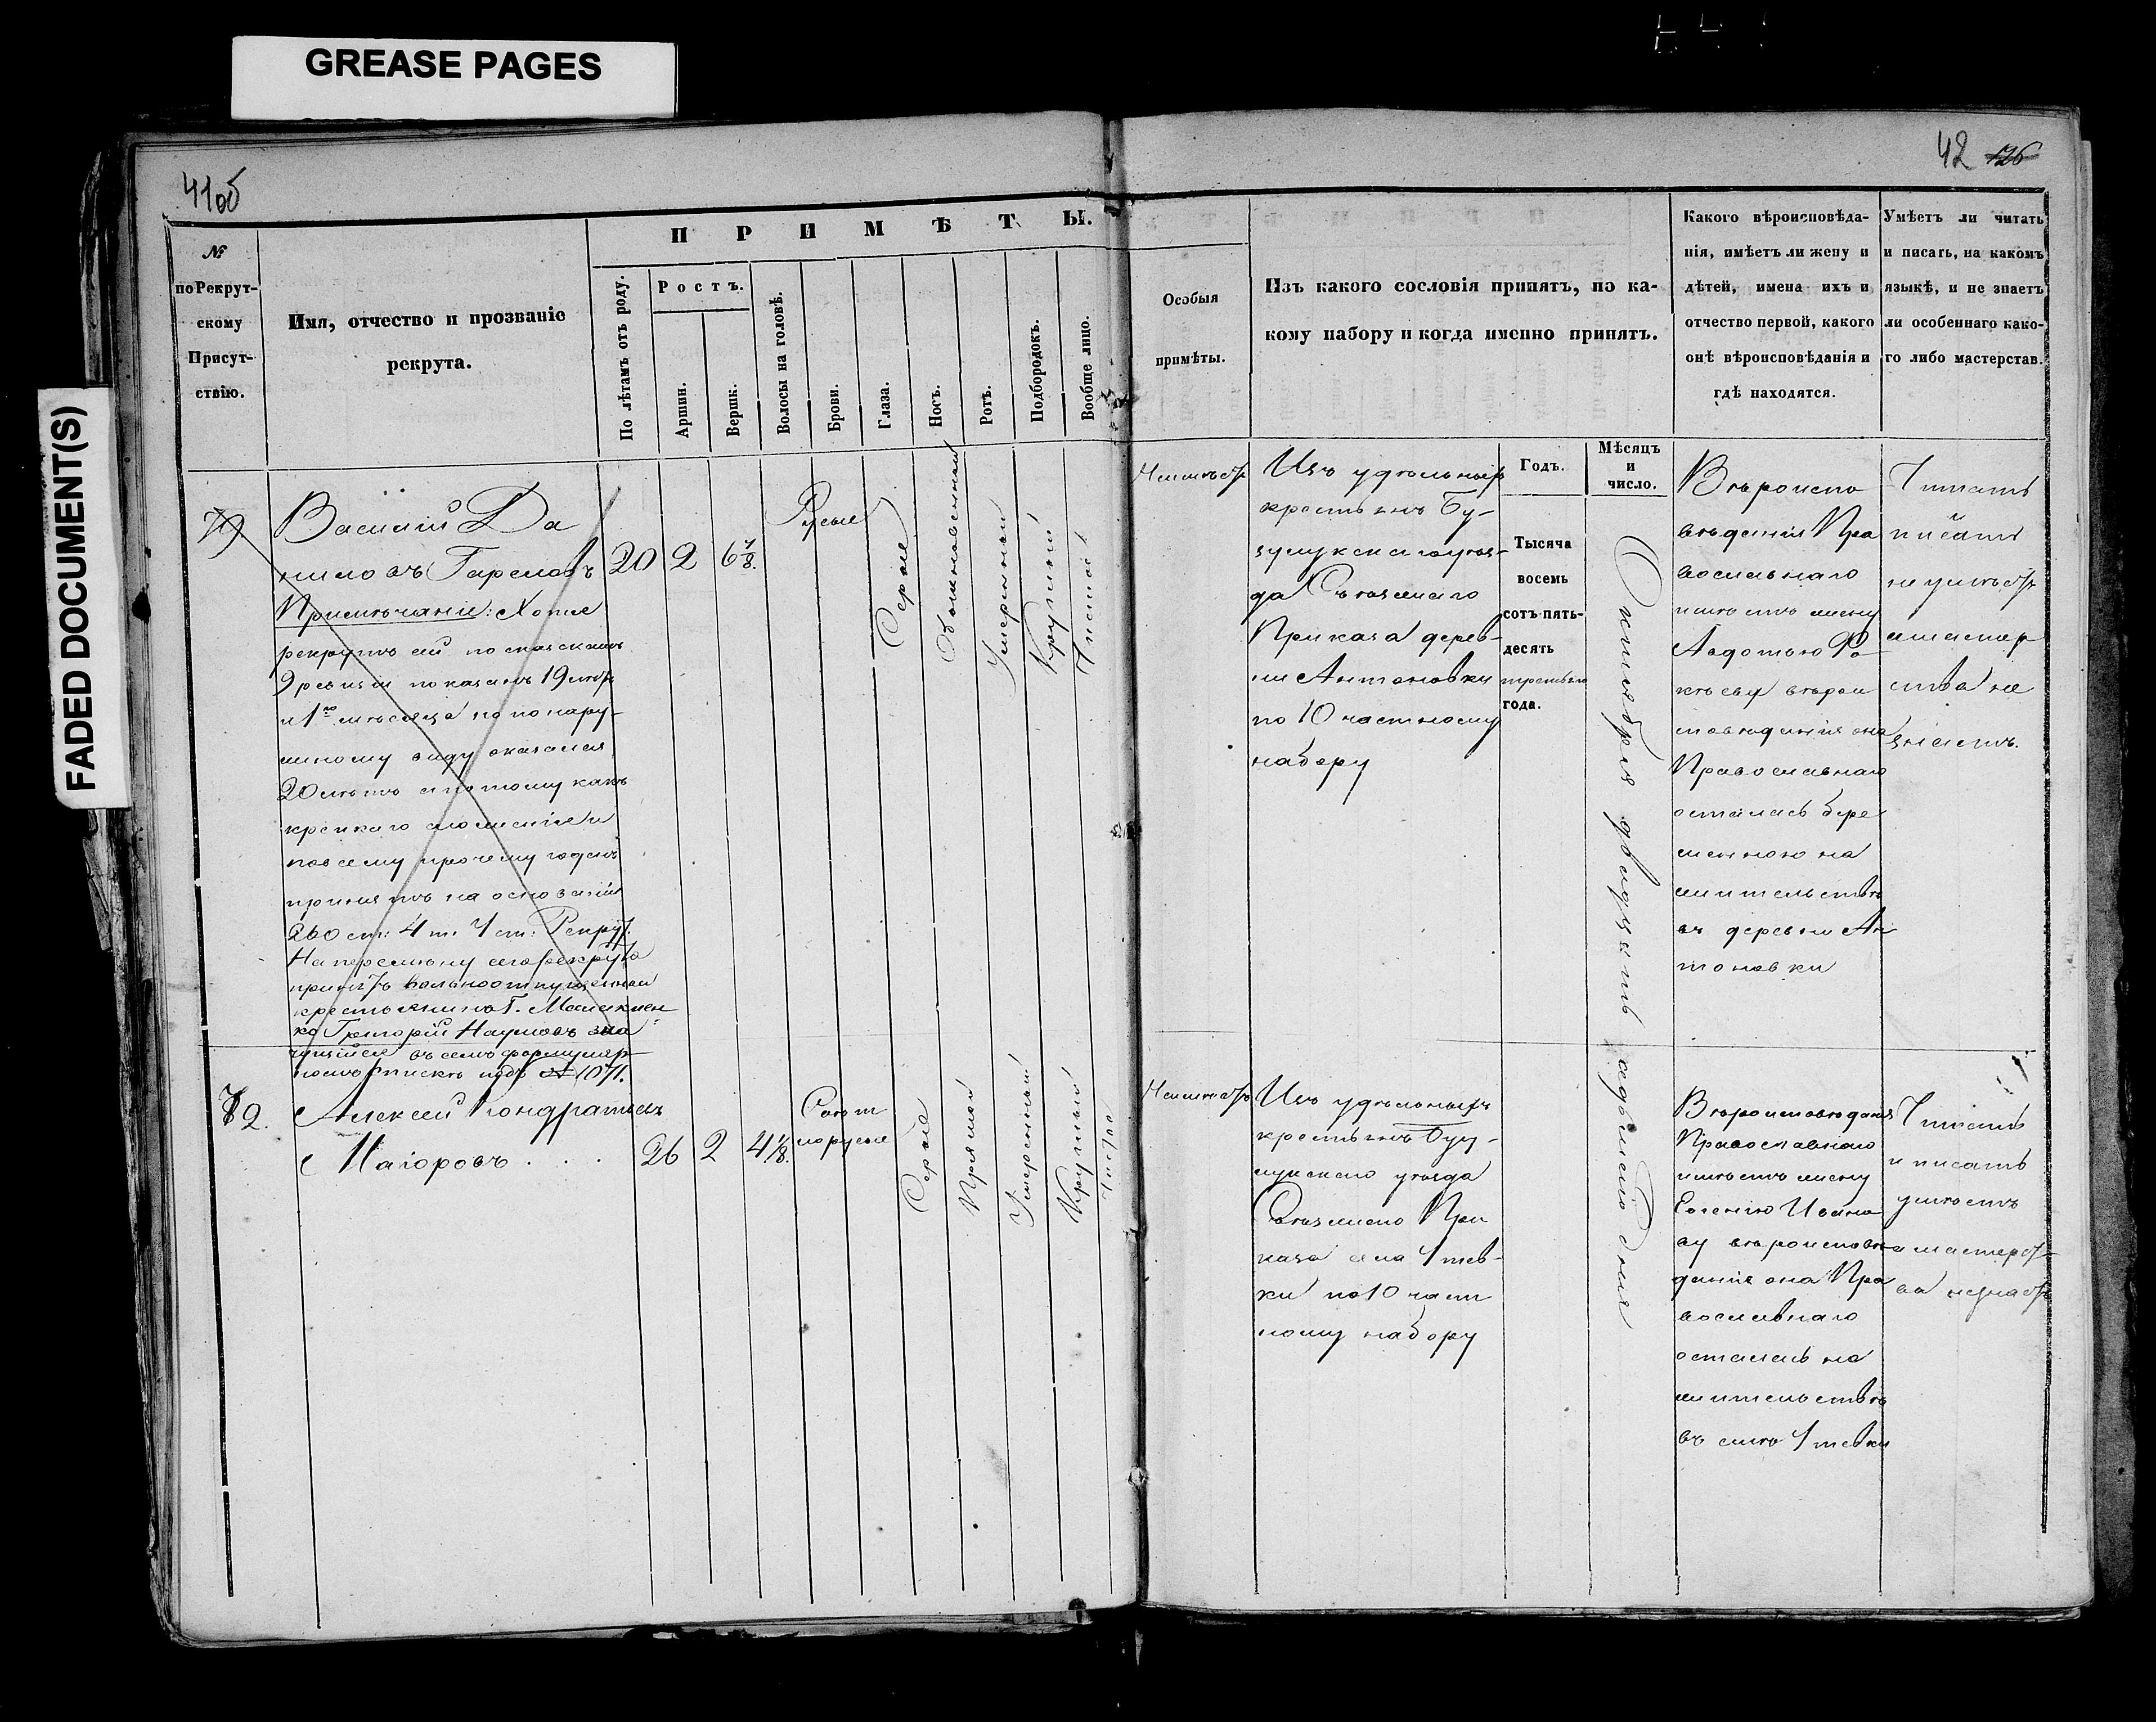 GREASE PAGES
FADED DOCUMENT(S)
41об
42 126
№
по Рекрут-
скому
Присут-
ствію.
Имя, отчество и прозваніе
рекрута.
ПРИМѢТЫ.
По лѣтамъ отъ роду.
Ростъ.
Аршин.
Вершк.
Волосы на головѣ.
Брови.
Глаза.
Носъ.
Ротъ.
Подбородокъ.
Вообще лицо.
Особыя
примѣты.
Изъ какого сословія принятъ, по ка-
кому набору и когда именно принятъ.
Годъ.
Мѣсяцъ
и
число.
Какого вѣроисповѣда-
нія, имѣетъ ли жену и
дѣтей, имена ихъ и
отчество первой, какого
онѣ вѣроисповѣданія и
гдѣ находятся.
Умѣетъ ли читать
и писать, на какомъ
языкѣ, и не знаетъ
ли особеннаго како-
го либо мастерстав.
Василій Да
ниловъ Гареловъ
Примѣчаніе: Хотя
рекрутъ сей по сказкамъ
9 ревизіи показанъ 19 лѣтъ
и 1го мѣсяца но по нару-
жному виду оказался
20 лѣтъ а потому какъ
крѣпкаго сложенія и
по всему прочему годенъ
принятъ на основаніи
260 ст: 4 т. 1 ст: Рекрут.
На перемѣну сего рекрута
принятъ вольноотпущенный
крестьянинъ Г.
Григорій Наумовъ зна
чущійся въ семъ формуляр
номъ спискѣ подъ № 1071.
20 2 6 7/8.
Русые
Серые
Обыкновенный
Умеренный
Круглый
Чистое
Неимѣетъ
Изъ удѣльныхъ
крестьянъ Бу-
зулукскаго уѣз-
да Съѣзжаго
Приказа дерев-
ни Антоновки
по 10 частному
набору
Тысяча
восемь
сотъ пять-
десять
третьяго
года.
Октября двадцать седьмаго дня
Вѣроиспо
вѣданія Пра
вославнаго
имѣетъ жену
Авдотью Фо
кѣеву вѣроис
повѣданія она
Православнаго
осталась бере
менною на
жительствѣ
въ деревни Ан
тоновки
Читать
писать
не умѣетъ
а мастер
ства не
знаетъ.
72.
Алексей Кондратьевъ
Маіоровъ . . .
26 2 4 1/8.
Свѣт
лорусые
Серые
Прямой
Умеренный
Круглый
Чистое
Неимѣетъ
Изъ удѣльныхъ
крестьянъ Бузу-
лукскаго уѣзда
Съѣзжаго При
каза села Утев-
ки по 10 част
ному набору
Вѣроисповѣданія
Православнаго
имѣетъ жену
Евгенію Ивано
ву вѣроисповѣ
данія она Пра
вославнаго
осталась на
жительствѣ
въ селѣ Утевки
Читать
и писать
умѣетъ
а мастерст-
ва незнаетъ